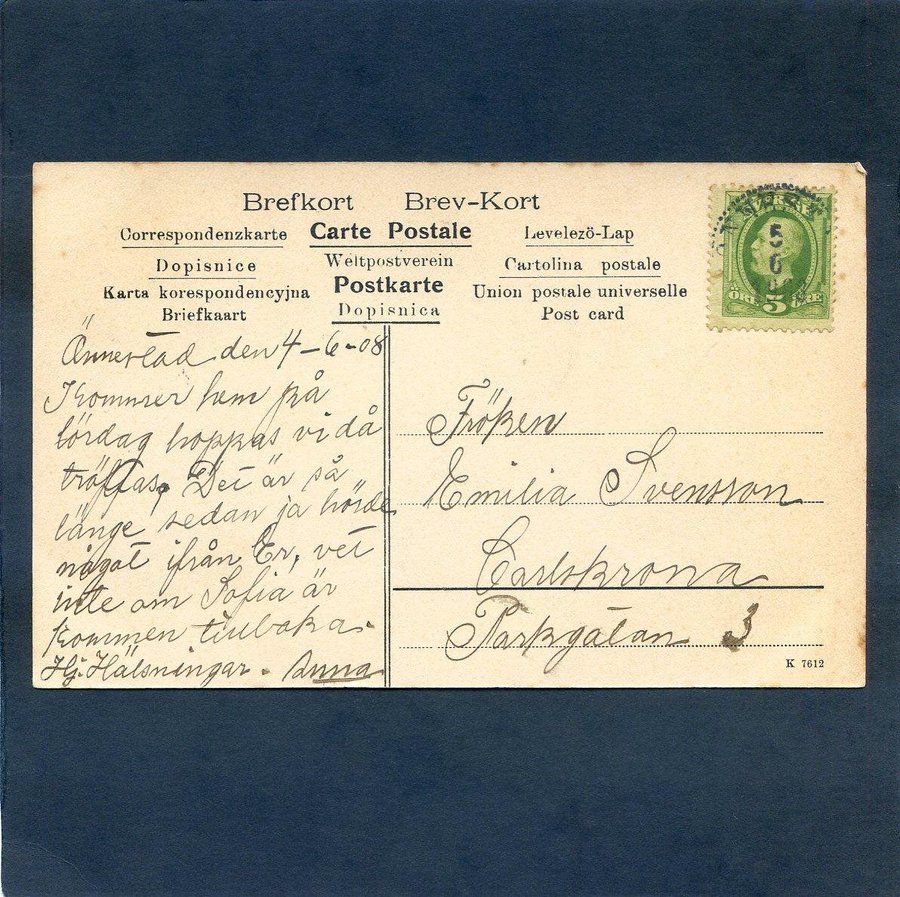 Brefkort Brev-Kort
Correspondenzkarte Carte Postale Levelező-Lap
Dopisnice Weltpostverein Cartolina postale
Karta korespondencyjna Postkarte Union postale universelle
Briefkaart Dopisnica Post card
SVERIGE
5
6
ÖRE 5 ÖRE
Ännerstad den 4-6-08
Kommer hem på
lördag hoppas vi då
träffas, Det är så
länge sedan ja hörde
något ifrån Er, vet
inte om Sofia är
kommen tillbaka.
Hj. Hälsningar. Anna
Fröken
Emilia Svensson
Carlskrona
Parkgatan 3
K 7612